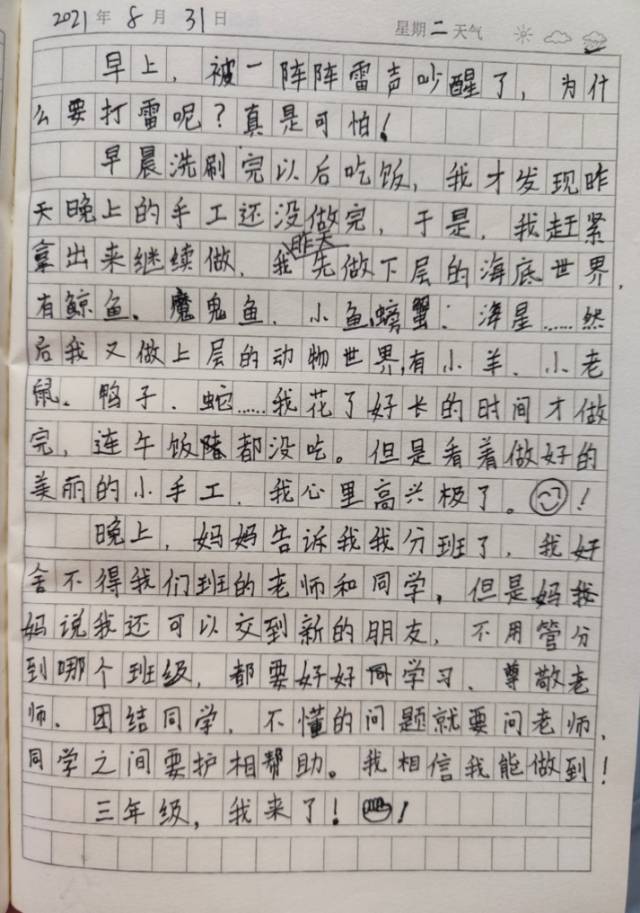 2021年 8月 31日 星期二 天气
早上，被一阵阵雷声吵醒了，为什
么要打雷呢？真是可怕！
早晨洗刷完以后吃饭，我才发现昨
天晚上的手工还没做完，于是，我赶紧
拿出来继续做，我昨天先做下层的海底世界，
有鲸鱼、魔鬼鱼、小鱼、螃蟹、海星……然
后我又做上层的动物世界，有小羊、小老
鼠、鸭子、蛇……我花了好长的时间才做
完，连午饭都没吃。但是看着做好的
美丽的小手工，我心里高兴极了。！
晚上，妈妈告诉我我分班了，我好
舍不得我们班的老师和同学，但是妈
妈说我还可以交到新的朋友，不用管分
到哪个班级，都要好好学习、尊敬老
师、团结同学，不懂的问题就要问老师，
同学之间要护相帮助。我相信我能做到！
三年级，我来了！！